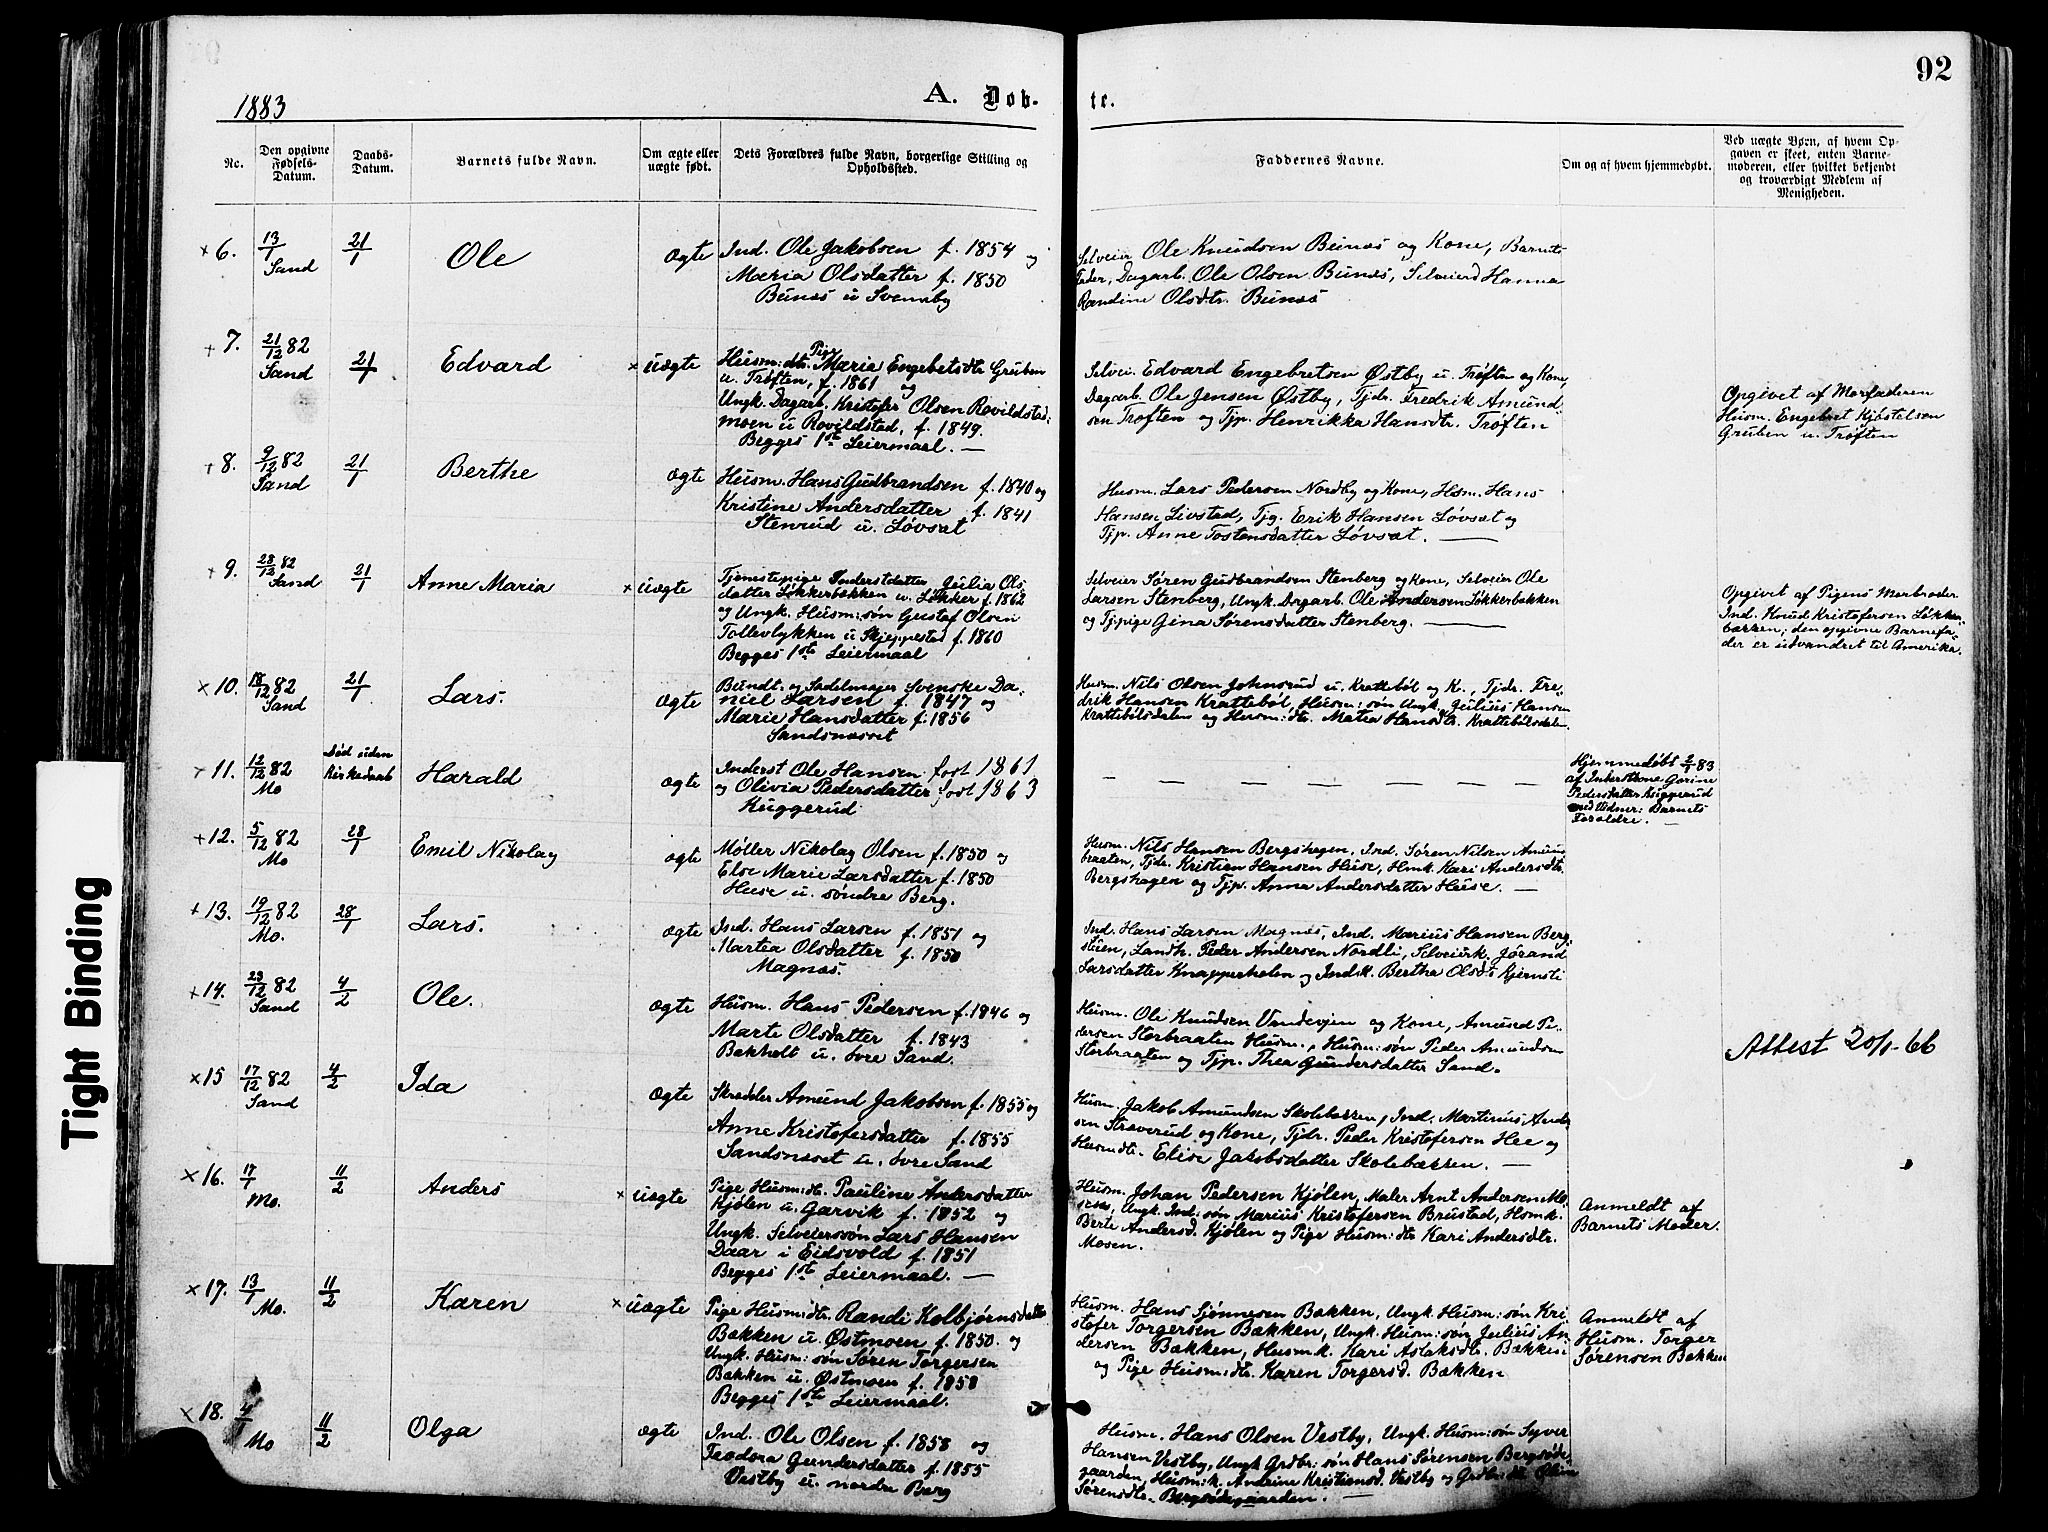 92
1883
A. Døb-
te.
Nc.
Den opgivne Fødsels-Datum.
Daabs-Datum.
Barnets fulde Navn.
Om ægte eller uægte født.
Dets Forældres fulde Navn, borgerlige Stilling og Opholdssted.
Faddernes Navne.
Om og af hvem hjemmedøbt.
Ved uægte Børn, af hvem Op-
gaven er skeet, enten Barne-
moderen, eller hvilket bekjendt
og troværdigt Medlem af
Menigheden.
+ 6. 13/1 Sand 21/1 Ole ægte
Ind. Ole Jakobsen f. 1854 og
Maria Olsdatter f. 1850
Bunæs u Svennby
Selveier Ole Knudsen Bunæs og Kone, Barnets
Fader, Dagarb. Ole Olsen Bunæs, Selveierd Hanna
Randine Olsdtr. Bunæs
+ 7. 21/12 82 Sand 21/1 Edvard × uægte
Husm: dtr. Pige Maria Engebretsdtr Gruben
u. Trøften, f. 1861 og
Ungk. Dagarb. Kristofer Olsen Rovildstad-
moen u Rovildstad, f. 1849.
Begges 1ste Leiermaal. —
Selvei. Edvard Engebretsen Østby u. Trøften og Kone,
Dagarb. Ole Jensen Østby, Tjdr. Fredrik Amund-
sen Trøften og Tjp. Henrikka Hansdtr. Trøften
Opgivet af Morfaderen
Husm. Engebret Kjøstelsen
Gruben u. Trøften
+ 8. 9/12 82 Sand 21/1 Berthe ægte
Husm. Hans Gudbrandsen f. 1840 og
Kristine Andersdatter f. 1841
Stenrud u. Løvsæt
Husm. Lars Pedersen Nordby og Kone, Hsm. Hans
Hansen Livstad, Tjg. Erik Hansen Løvsæt og
Tjp. Anne Tostensdatter Løvsæt. —
+ 9. 28/12 82 Sand 21/1 Anne Maria × uægte
Tjenestepige Inderstdatter Julia Ols
datter Løkkerbakken u. Løkker f. 1862
og Ungk. Husm: søn Gustaf Olsen
Tollevlykken u Skjeppestad f. 1860
Begges 1ste Leiermaal
Selveier Søren Gudbrandsen Stenberg og Kone, Selveier Ole
Larsen Stenberg, Ungk. Dagarb. Ole Andersen Løkkerbakken
og Tjpige Gina Sørensdatter Stenberg. —
Opgivet af Pigens Morbroder
Ind. Knud Kristofersen Løkker-
bakken; den opgivne Barnefa-
der er udvandret til Amerika.
× 10. 18/12 82 Sand 21/1 Lars. ægte
Bundt. og Sadelmager Svenske Da-
niel Larsen f. 1847 og
Marie Hansdatter f. 1856
Sandsnæsset
Husm. Nils Olsen Johnsrud u. Krattebøl og K., Tjdr. Fre-
drik Hansen Krattebøl, Husm: søn Ungk. Julius Hansen
Krattebølsdalen og Husm: dtr. Matea Hansdtr. Krattebølsdalen
+ 11. 12/12 82 Mo Død uden Kirkedaab Harald ægte
Inderst Ole Hansen født 1861
og Olivia Pedersdatter født 1863
Kuggerud
— — — — — — —
Hjemmedøbt 2/1 83
af Inderstkone Gorine
Pedersdatter Kuggerud
med Vidner: Barnets
Forældre. —
+ 12. 5/12 82 Mo 28/1 Emil Nikolay ægte
Møller Nikolay Olsen f. 1850 og
Else Marie Larsdatter f. 1850
Huse u. søndre Berg.
Husm. Nils Hansen Bergshagen, Ind. Søren Nilsen Amund-
braaten, Tjdr. Kristian Hansen Huse, Hmk. Kari Andersdtr.
Bergshagen og Tjp. Anna Andersdatter Huse. —
+ 13. 19/12 82 Mo. 28/1 Lars. ægte
Ind. Hans Larsen f. 1851 og
Martea Olsdatter f. 1850
Magnæs.
Ind. Hans Larsen Magnæs, Ind. Marius Hansen Berg-
stuen, Landh. Peder Andersen Nordli, Selveierk. Jørand
Larsdatter Knapperholen og Indk. Bertha Olsdt Kjernsti
+ 14. 23/12 82 Sand 4/2 Ole. ægte
Husm. Hans Pedersen f. 1846 og
Marte Olsdatter f. 1843
Bækholt u. øvre Sand.
Husm. Ole Knudsen Vandvejen og Kone, Amund Pe-
dersen Storbraaten Husm., Husm: søn Peder Amundsen
Storbraaten og Tjp. Thea Gundersdatter Sand.
Attest 20/1-66
× 15 17/12 82 Sand 4/2 Ida ægte
Skrædder Amund Jakobsen f. 1855 og
Anne Kristofersdatter f. 1855
Sandsnæset u. øvre Sand
Husm. Jakob Amundsen Skolebakken, Ind. Martinius Ander
sen Straverud og Kone, Tjdr. Peder Kristofersen Hee og
Husmdtr. Elise Jakobsdatter Skolebakken. —
× 16. 17/1 Mo. 11/2 Anders × uægte
Pige Husm: dtr. Pauline Andersdatter
Kjølen u. Garvik f. 1852 og
Ungk. Selveierssøn Lars Hansen
Daar i Eidsvold f. 1851
Begges 1ste Leiermaal. —
Husm. Johan Pedersen Kjølen, Maler Arnt Andersen Mo-
sen, Ungk. Ind: søn Marius Kristofersen Brustad, Hsmk.
Berte Andersd. Kjølen og Pige Husm: dtr Kari Andersdtr.
Mosen.
Anmeldt af
Barnets Moder.
× 17. 13/1 Mo. 11/2 Karen × uægte
Pige Husm: dtr. Randi Kolbjørnsdatter
Bakken u. Østmoen f. 1850. og
Ungk. Husm: søn Søren Torgersen
Bakken u. Østmoen f. 1858
Begges 1ste Leiermaal.
Husm. Hans Sjønnesen Bakken, Ungk. Husm: søn Kri
stofer Torgersen Bakken, Ungk. Husm: søn Julius An-
dersen Bakken, Husm.k. Kari Aslaksdtr. Bakken
og Pige Husm: dtr. Karen Torgersd. Bakken
Anmeldt af
Husm. Torger
Sørensen Bakken
× 18. 4/1 Mo 11/2 Olga ægte
Ind. Ole Olsen f. 1858 og
Teodora Gundersdatter f. 1855
Vestby u. nordre Berg
Husm. Hans Olsen Vestby, Ungk. Husm: søn Syver
Hansen Vestby, Ungk Grdbr: søn Hans Sørensen Bergsøde-
gaarden, Husm: k. Andrine Kristiansd. Vestby og Grdbr: dtr
Sørensdtr. Bergsødegaarden. —
Tight Binding